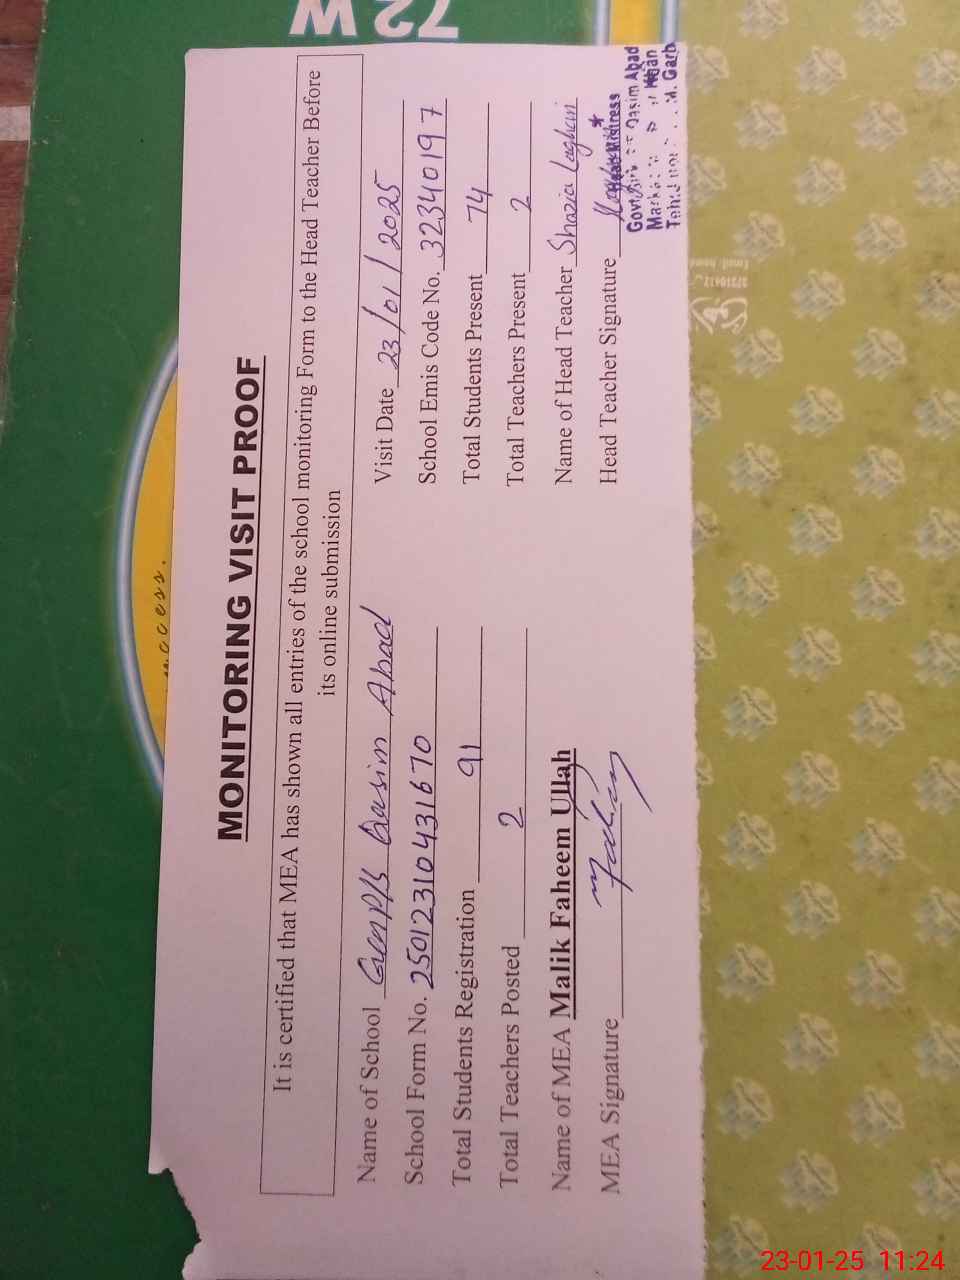 72W
uccess.
MONITORING VISIT PROOF
It is certified that MEA has shown all entries of the school monitoring Form to the Head Teacher Before
its online submission
Name of School Qasim Abad
Visit Date 23/01/2025
School Form No. 25012310431670
School Emis Code No. 32340197
Total Students Registration 91
Total Students Present 74
Total Teachers Posted 2
Total Teachers Present 2
Name of MEA Malik Faheem Ullah
Name of Head Teacher Shazia Laghari
MEA Signature
Head Teacher Signature
Head Mistress
Govt Qasim Abad
Khan
23-01-25 11:24